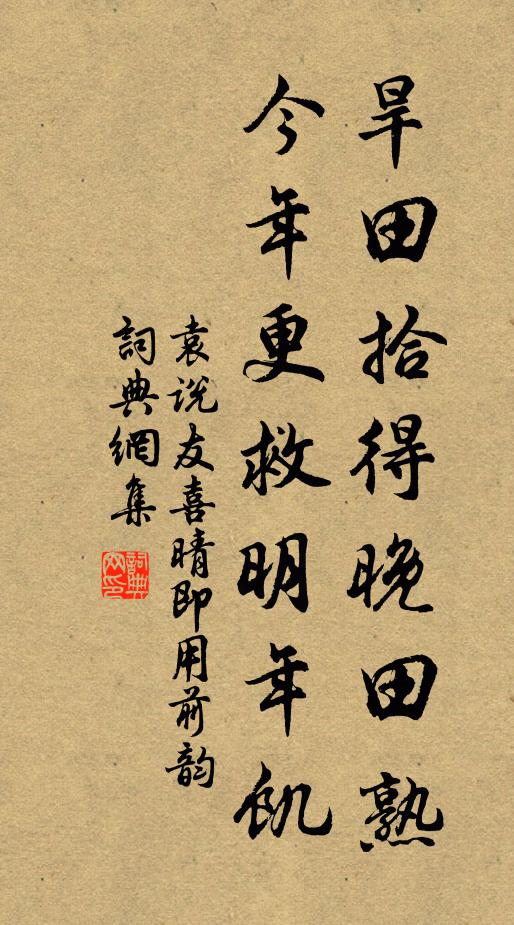 旱田拾得晚田熟
今年更救明年飢
袁说友喜晴即用前韵
詞典網集
詞典網印